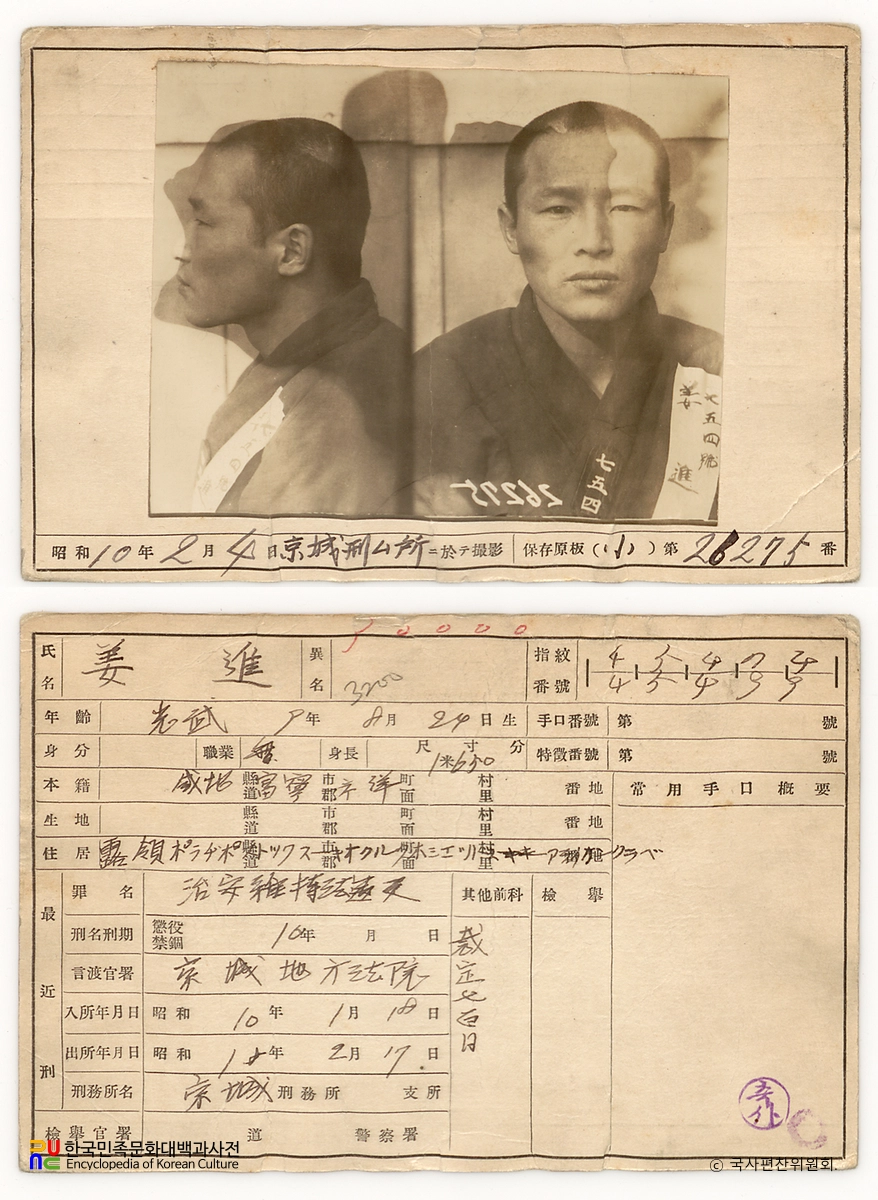 姜 進
七五四號
七五四
26275
昭和10年2月4日京城刑ム所ニ於テ撮影 保存原板(小)第26275番
10000
氏名 姜 進 異名 3200 指紋番號
年齡 光武 9年 8月 24日生 手口番號 第 號
身分 職業 無 身長 尺寸分 1米650 特徵番號 第 號
本籍 咸北 縣道 富寧 市郡 町面 村里 番地 常用手口概要
生地 縣道 市郡 町面 村里 番地
住居 露領
罪名 治安維持法違反 其他前科 檢擧
最近刑
刑名刑期 懲役禁錮 10年 月 日
裁定七百日
言渡官署 京城地方法院
入所年月日 昭和 10年 1月 18日
出所年月日 昭和 年 2月 17日
刑務所名 京城 刑務所 支所
檢擧官署 道 警察署
한국민족문화대백과사전
Encyclopedia of Korean Culture
© 국사편찬위원회.